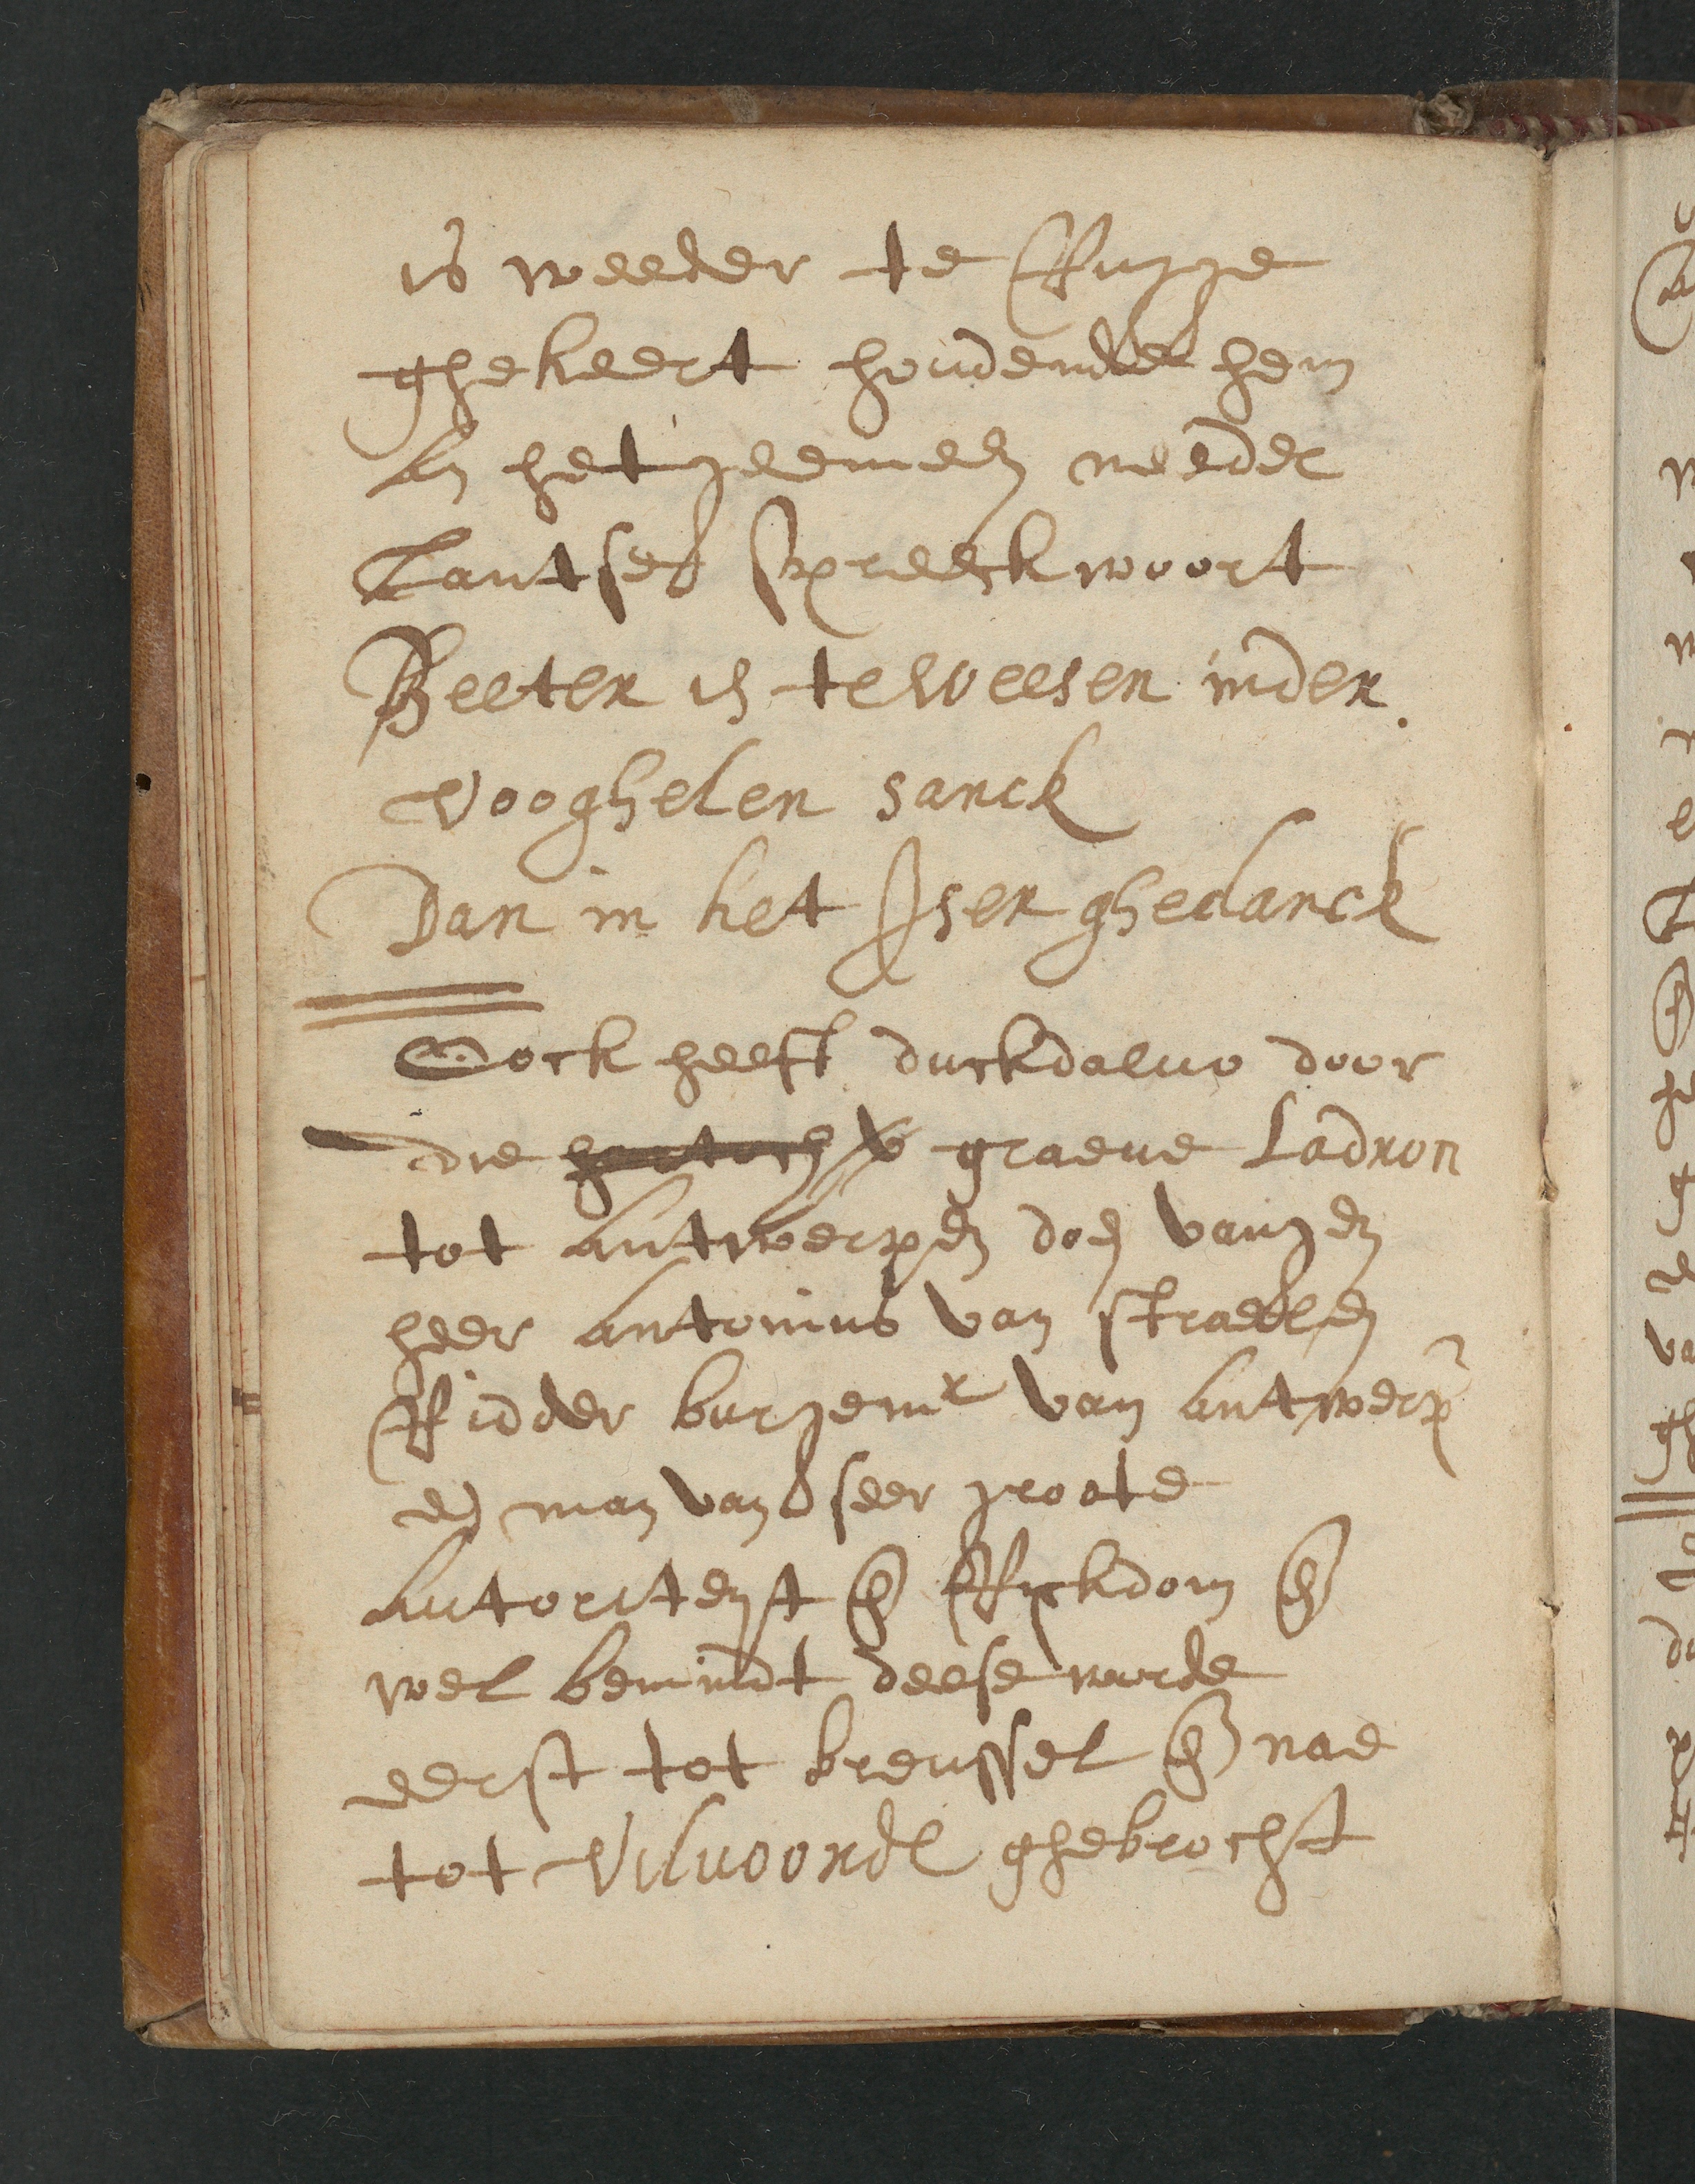 is weeder te Rugge
ghekeert houdende hem
an het gemeen needer
Lantses spreeckwoort
Beeter is te Weesen inder
Vooghelen sanck
Dan in het Iser ghedanck
Oock heeft duckdalvo door
die hartoch graeve Ladron
tot antwerpen doen vangen
heer antonius van straelen
Ridder burgemr van antwerp
en man van seer groote
autoriteyt en Ryckdom en
wel bemindt deese worde
eerst tot breussel en nae
tot Vilvoorde ghebrocht